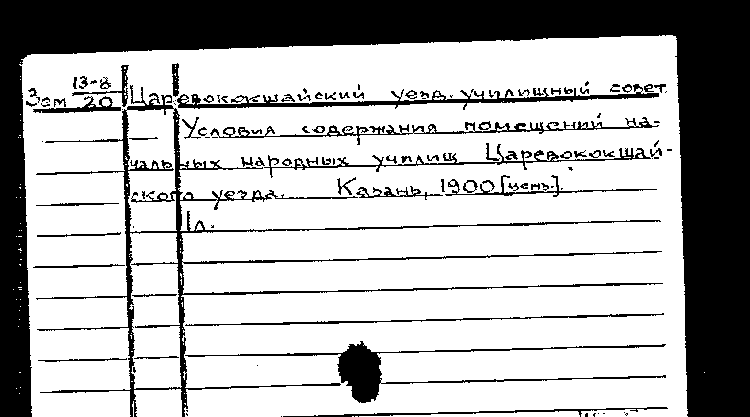 Зем 13-8/20 Царевококшайский уезд. училищный совет
Условия содержания помещений на-
чальных народных училищ Царевококшай-
ского уезда. Казань, 1900 [ценз.].
1л.